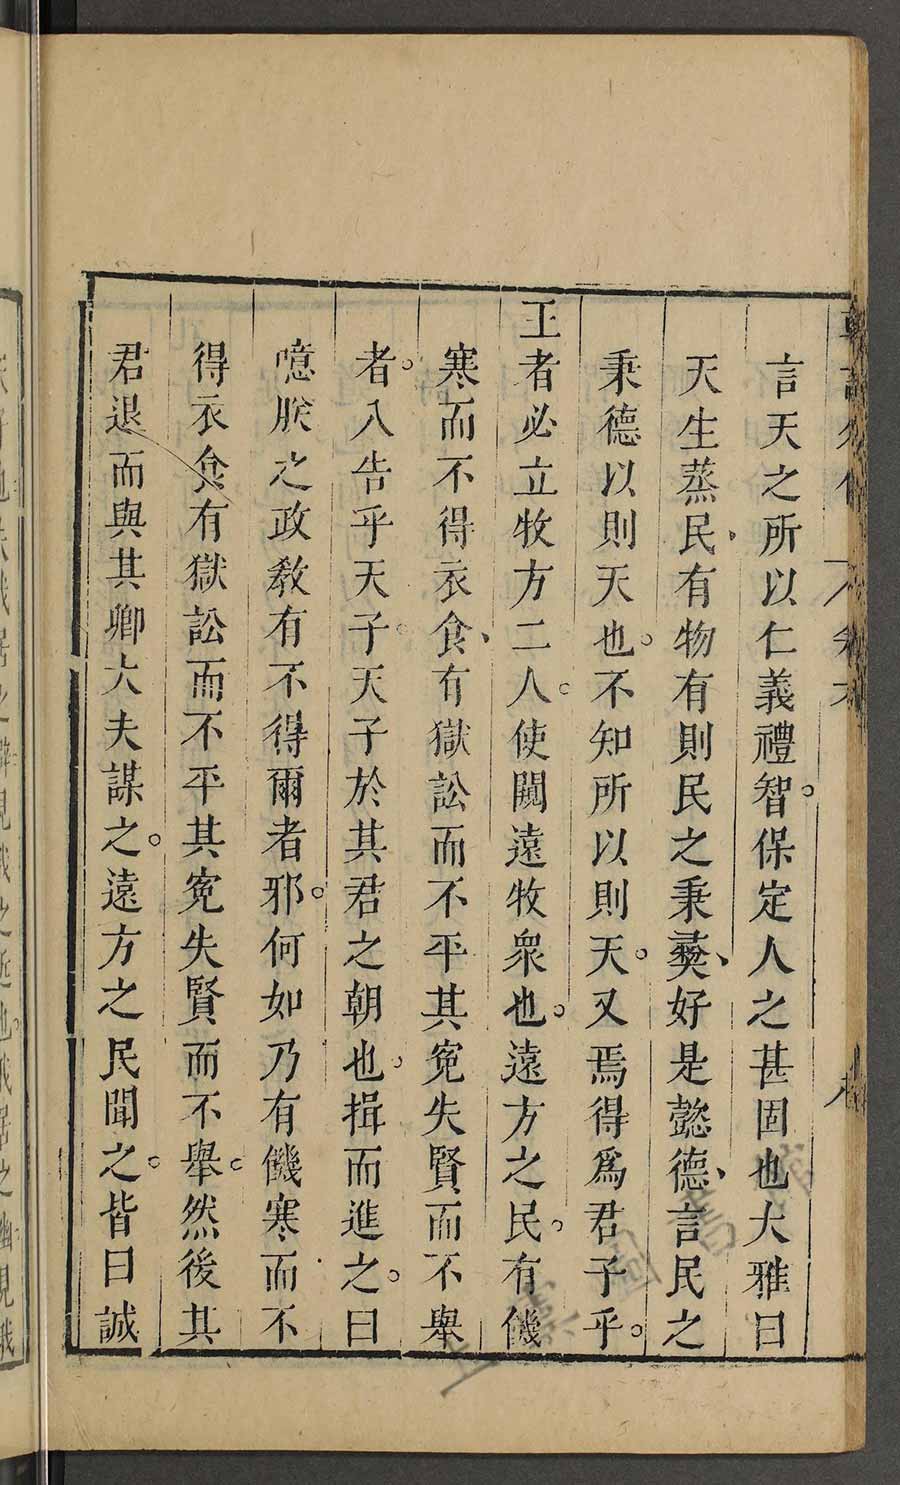 韓詩外傳 卷六
言天之所以仁義禮智。保定人之甚固也大雅曰
天生蒸民、有物有則民之秉彜、好是懿德、言民之
秉德以則天也。不知所以則天。又焉得爲君子乎。
王者必立牧方二人。使闚遠牧衆也。遠方之民。有饑
寒而不得衣食、有獄訟而不平其寃失賢而不舉
者。入告乎天子。天子於其君之朝也、揖而進之。曰
噫朕之政教有不得爾者邪。何如乃有饑寒而不
得衣食有獄訟而不平其寃失賢而不舉。然後其
君退而與其卿大夫謀之。遠方之民聞之。皆曰誠